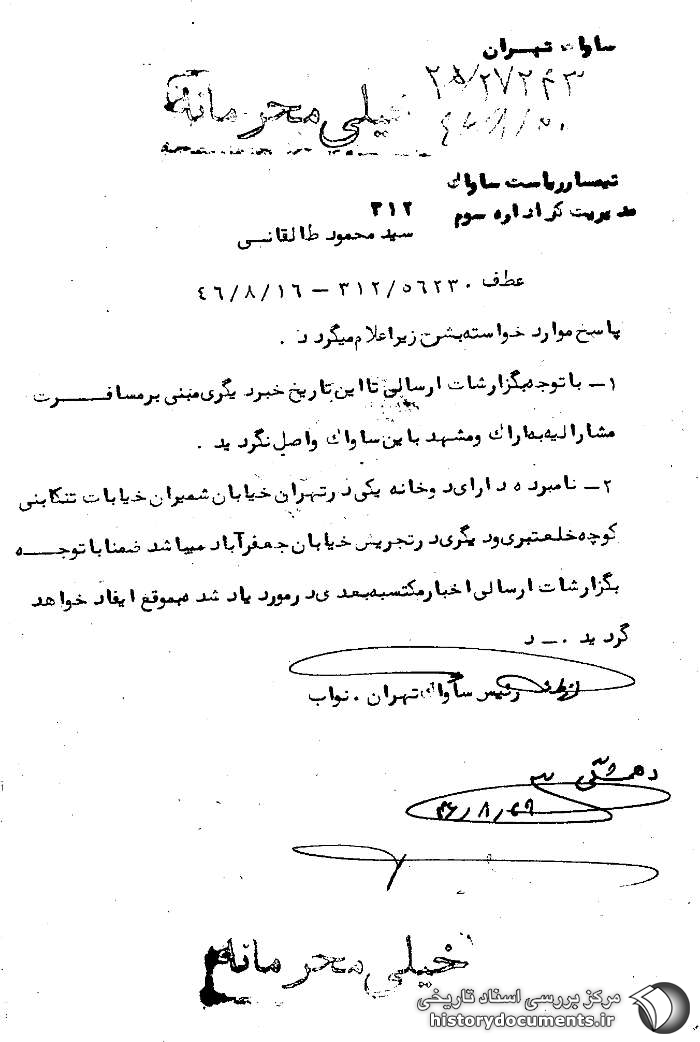 ساواک تهران
خیلی محرمانه
۲۵/۲۷۲۴۳
تیمسار ریاست ساواک
مدیریت کل اداره سوم ۳۱۲
سید محمود طالقانی
عطف ۳۱۲/۵۶۲۳۰ – ۴۶/۸/۱۶
پاسخ موارد خواسته بشرح زیر اعلام میگردد .
۱– با توجه بگزارشات ارسالی تا این تاریخ خبر دیگری مبنی بر مسافرت
مشارالیه به اراک و مشهد باین ساواک واصل نگردید .
۲– نامبرده دارای دو خانه یکی در تهران خیابان شمیران خیابات تنکابنی
کوچه خلعتبری و دیگری در تجریش خیابان جعفرآباد میباشد ضمنا با توجه
بگزارشات ارسالی اخبار مکتسبه بعدی در مورد یاد شده بموقع ایفاد خواهد
گردید .– د
رئیس ساواک تهران . نواب
خیلی محرمانه
مرکز بررسی اسناد تاریخی
historydocuments.ir